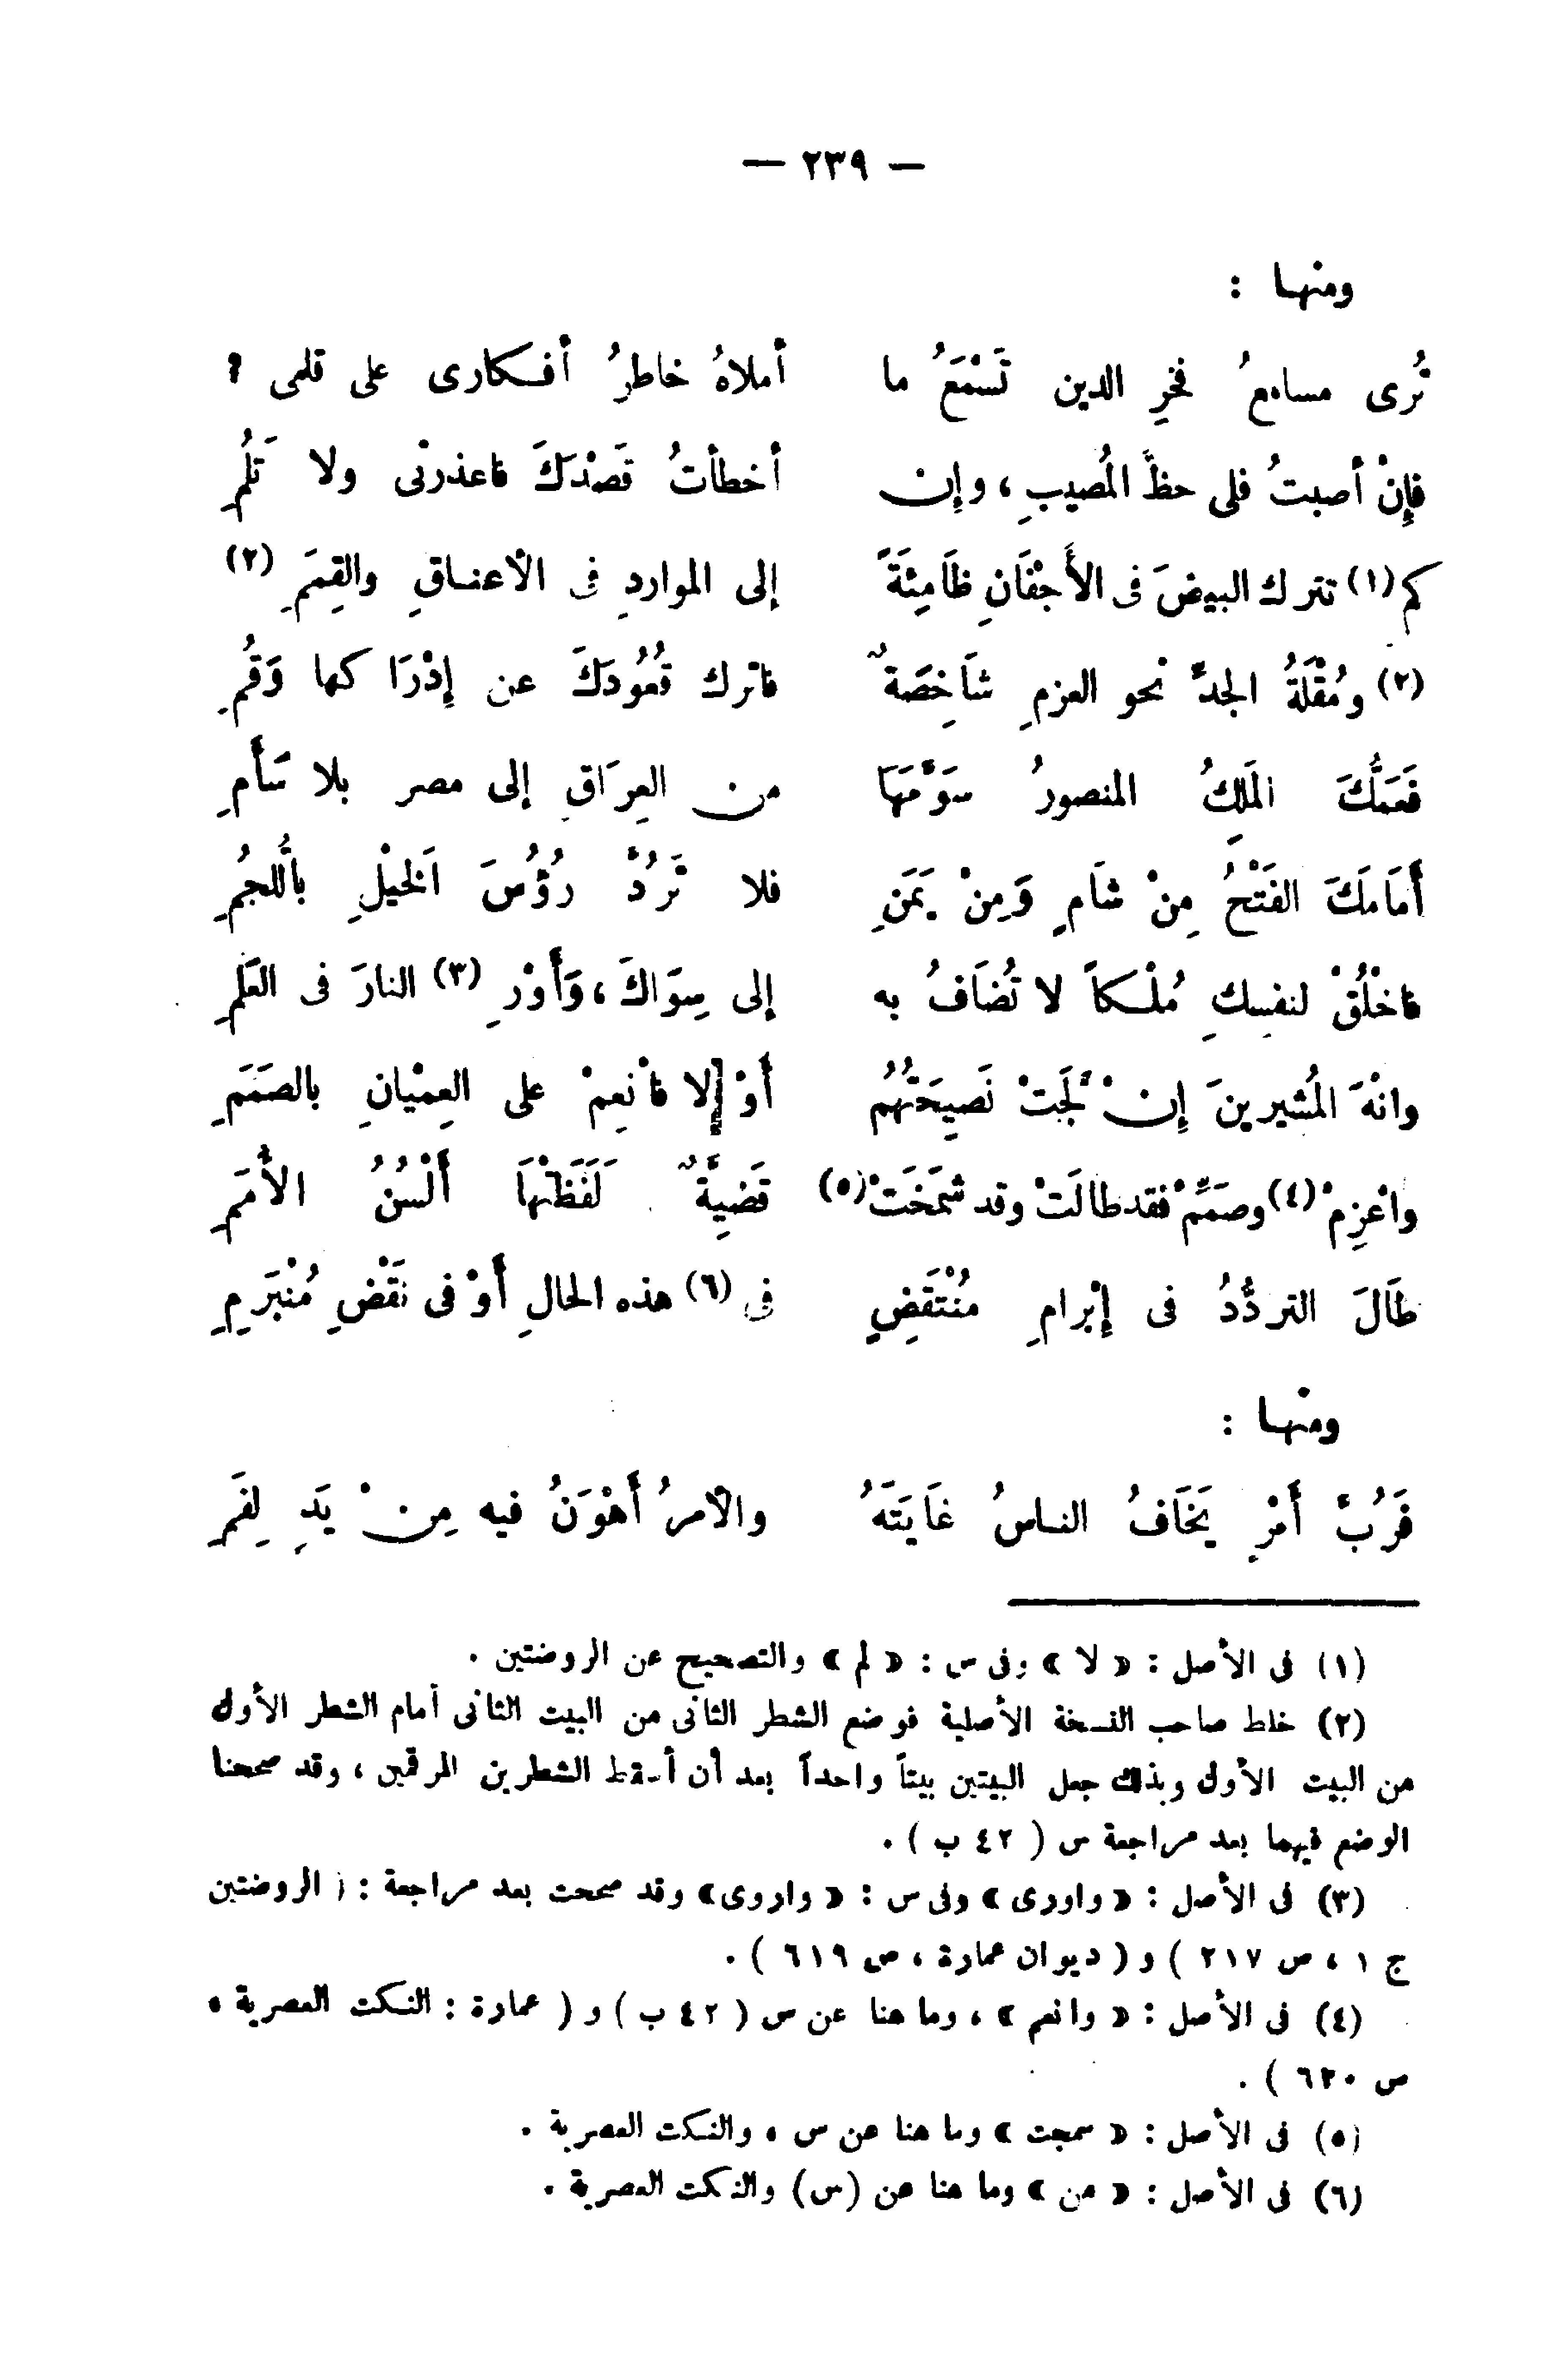 — ٢٣٩ —
ومنها :
تُرى مسامعُ فخرِ الدين تَسْمَعُ ما أملاهُ خاطرُ أفكارى على قلمى ؟
فإِنْ أصبتُ فلى حظُّ المُصيبِ ، وإن أخطأتُ قَصْدَكَ فاعذرنْى ولا تَلُمِ
كم (١) تترك البيضَ فى الأَجْفَانِ ظَامِئَةً إلى المواردِ فى الأعناقِ والقِمَمِ (٢)
(٢) ومُقْلَةُ الجدِّ نحو العزمِ شَاخِصَةٌ فاترك قُعُودَكَ عن إِدْرَاكها وَقُمِ
فَعَمُّكَ المَلِكُ المنصورُ سَوَّمَهَا من العِرَاقِ إلى مصر بلا سَأَمِ
أَمَامَكَ الفَتْحُ مِنْ شَامٍ وَمِنْ يَمَنِ فلا تَرُدَّ رُؤُسَ الَخيْلِ بالُّلجُمِ
فاخْلُقْ لنفسِكِ مُلْكاً لا تُضَافُ به إلى سِوَاكَ ، وَأَوْرِ (٣) النارَ فى العَلَمِ
وانْهَ المُشيرينَ إِنْ لَجَّتْ نَصِيحَتُهُمُ أَوْ [إلا فأنعِمْ على العِمْيانِ بالصَمَمِ
واعْزِمْ (٤) وصَمِّمْ فقد طالَتْ وقد شَمَخَتْ (٥) قَضِيَّةٌ لَفَظَتْهَا أَلْسُنُ الأُمَمِ
طَالَ التردُّدُ فى إِبْرامِ مُنْتَقَضٍ فى (٦) هذه الحالِ أَوْ فى نَقْضِ مُنْبَرِمِ
ومنها :
فَرُبَّ أَمْرٍ يَخَافُ الناسُ غَايَتَهُ والأمرُ أَهْوَنُ فيه مِنْ يَدٍ لِفَمِ
(١) فى الأصل : « لا » وفى س : « لم » والتصحيح عن الروضتين .
(٢) خلط صاحب النسخة الأصلية فوضع الشطر الثانى من البيت الثانى أمام الشطر الأول
من البيت الأول وبذلك جعل البيتين بيتاً واحداً بعد أن أسقط الشطرين المرقمين ، وقد صححنا
الوضع فيهما بعد مراجعة س ( ٤٢ ب ) .
(٣) فى الأصل : « واورى » وفى س : « واروى » وقد صححت بعد مراجعة : ( الروضتين
ج ١ ، ص ٢١٧ ) و ( ديوان عمارة ، ص ٦١٩ ) .
(٤) فى الأصل : « وانعم » ، وما هنا عن س ( ٤٢ ب ) و ( عمارة : النكت العصرية ،
ص ٦٢٠ ) .
(٥) فى الأصل : « سمجت » وما هنا عن س ، والنكت العصرية .
(٦) فى الأصل : « من » وما هنا عن (س) والنكت العصرية .